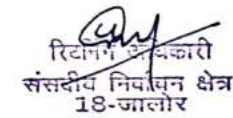 रिटर्निंग अधिकारी
संसदीय निर्वाचन क्षेत्र
18-जालोर